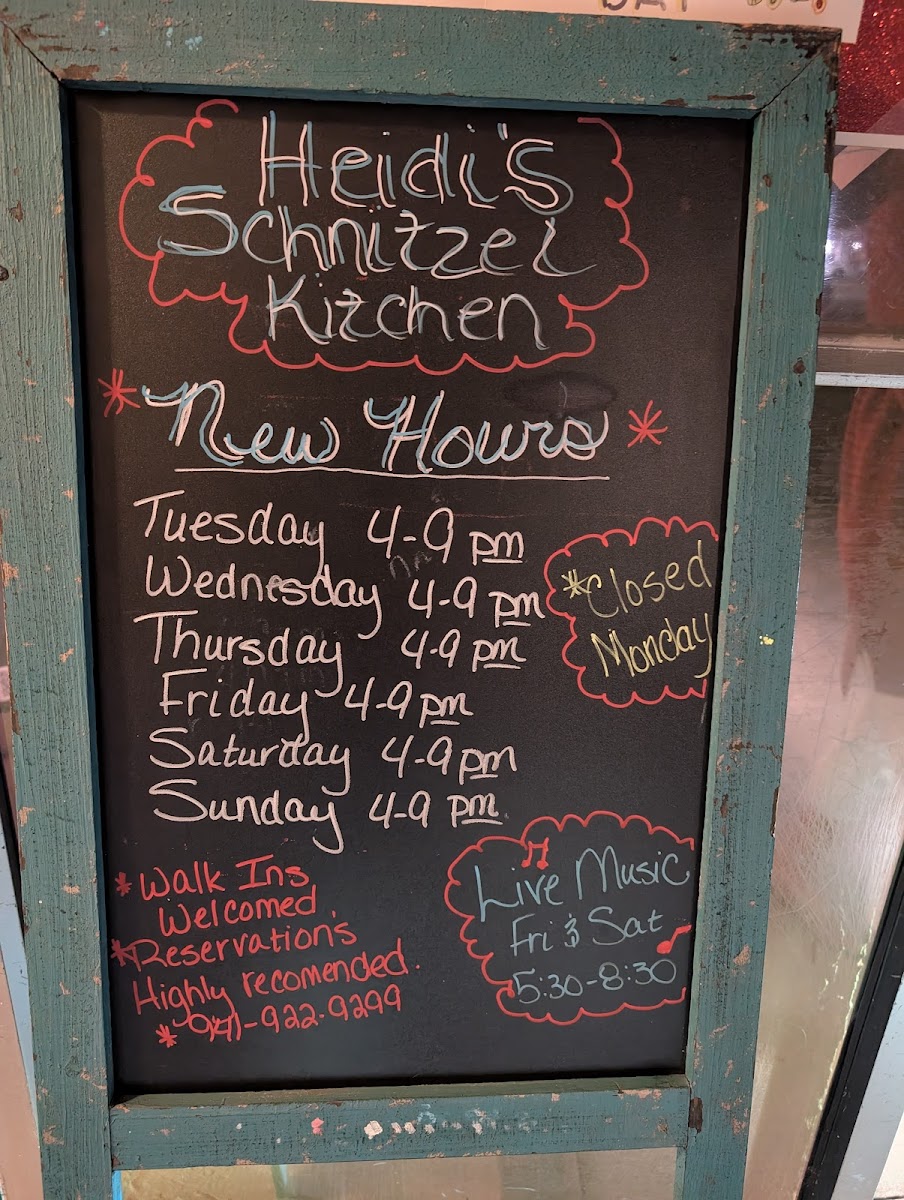 Heidi's
Schnitzel
Kitchen
* New Hours *
Tuesday 4-9 pm
Wednesday 4-9 pm
Thursday 4-9 pm
Friday 4-9 pm
Saturday 4-9 pm
Sunday 4-9 pm
*Closed
Monday
* Walk Ins
Welcomed
* Reservation's
Highly recomended.
* 941-922-9299
Live Music
Fri & Sat
5:30-8:30